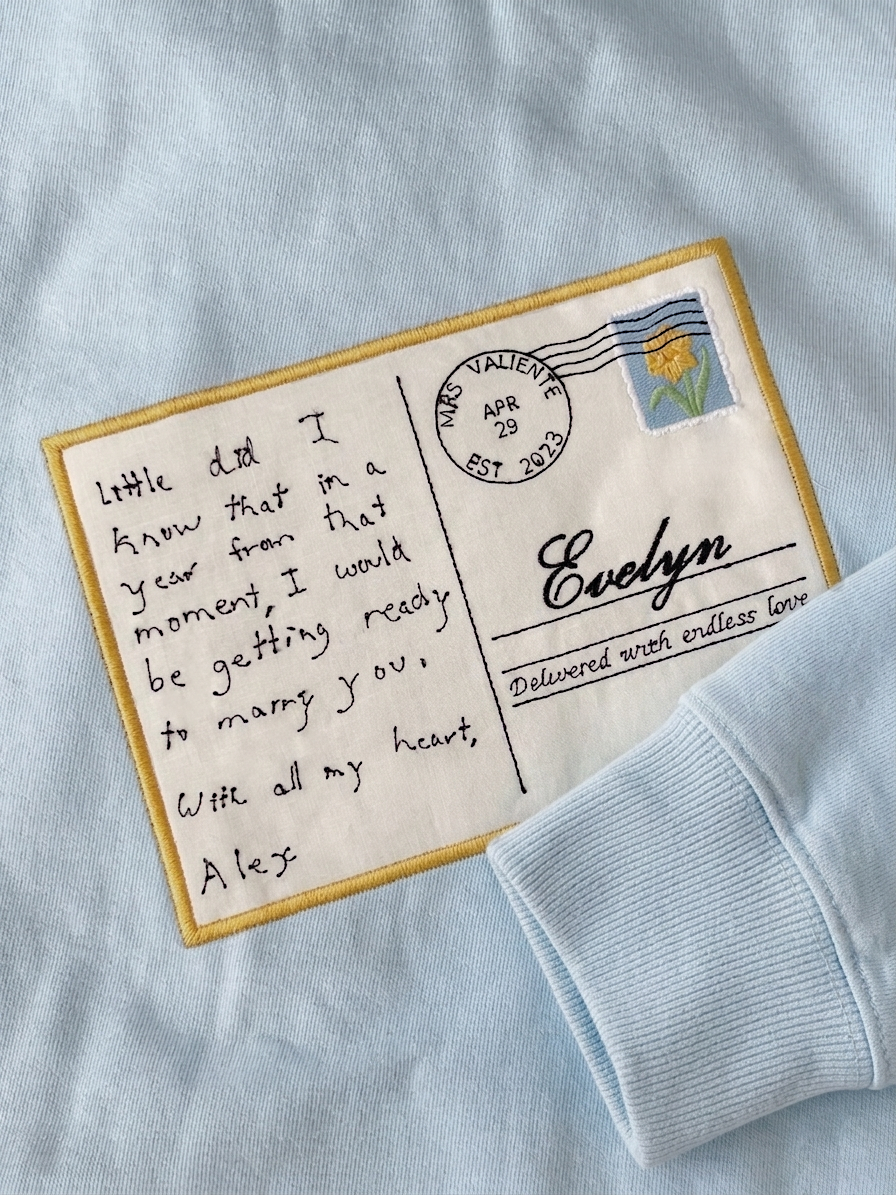 Little did I
know that in a
year from that
moment, I would
be getting ready
to marry you.
With all my heart,
Alex
MRS VALIENTE
APR
29
EST 2023
Evelyn
Delivered with endless love